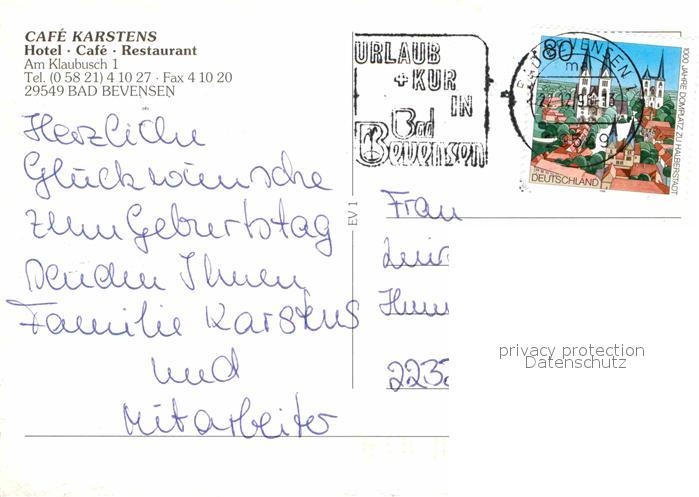 CAFÉ KARSTENS
Hotel · Café · Restaurant
Am Klaubusch 1
Tel. (0 58 21) 4 10 27 · Fax 4 10 20
29549 BAD BEVENSEN
Herzliche
Glückwünsche
zum Geburtstag
senden Ihnen
Familie Karstens
und
Mitarbeiter
EV 1
URLAUB
+ KUR
IN
Bad
Bevensen
BEVENSEN
80
1000 JAHRE DOMPLATZ ZU HALBERSTADT
DEUTSCHLAND
Frau
privacy protection
Datenschutz